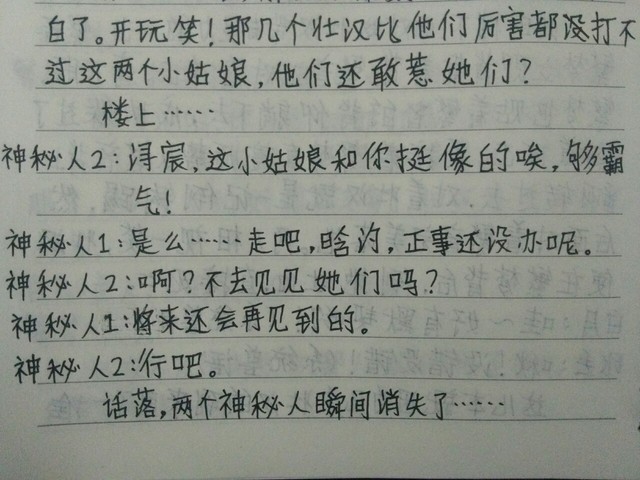 白了。开玩笑！那几个壮汉比他们厉害都没打不
过这两个小姑娘，他们还敢惹她们？
楼上……
神秘人2：浔宸，这小姑娘和你挺像的唉，够霸
气！
神秘人1：是么……走吧，晗汋，正事还没办呢。
神秘人2：啊？不去见见她们吗？
神秘人1：将来还会再见到的。
神秘人2：行吧。
话落，两个神秘人瞬间消失了……